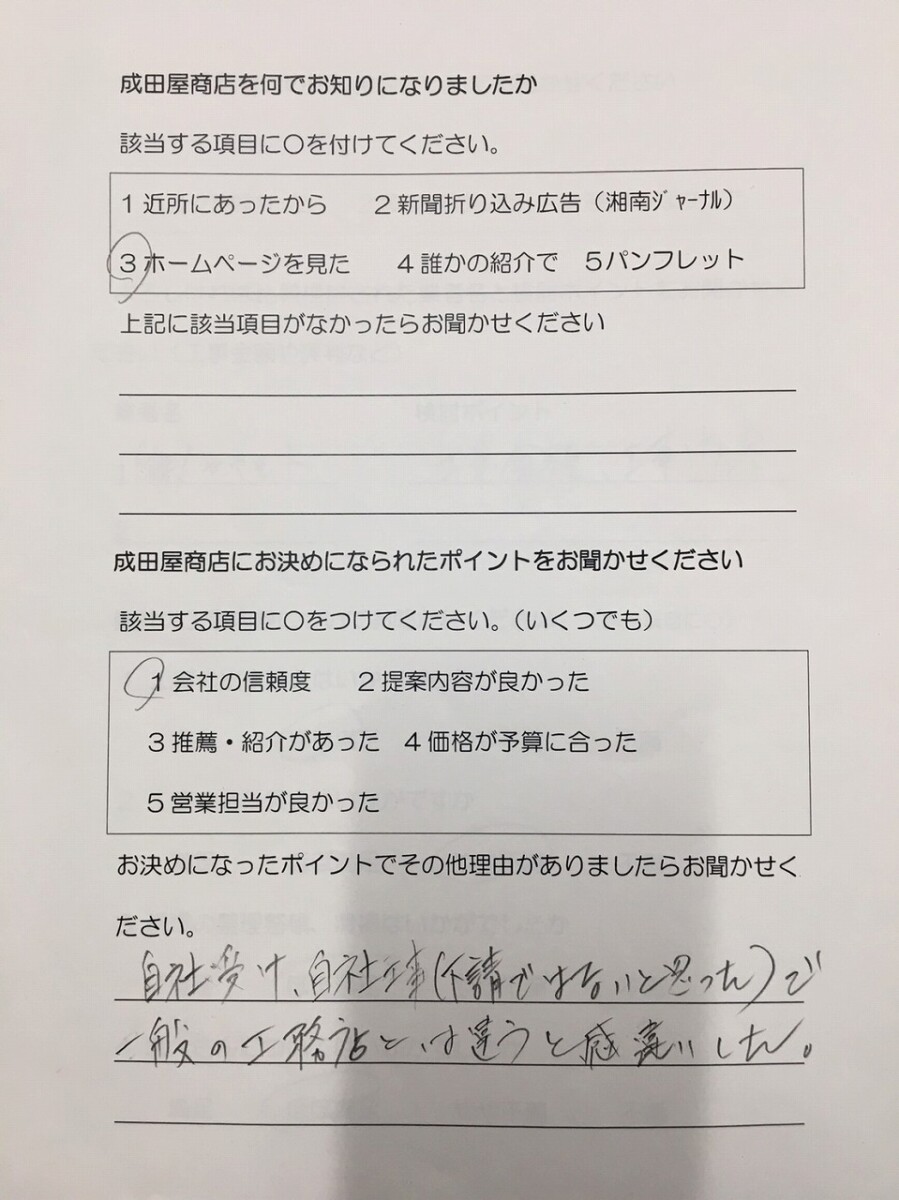 成田屋商店を何でお知りになりましたか
該当する項目に〇を付けてください。
1 近所にあったから　2 新聞折り込み広告（湘南ｼﾞｬｰﾅﾙ）
3 ホームページを見た　4 誰かの紹介で　5 パンフレット
上記に該当項目がなかったらお聞かせください
成田屋商店にお決めになられたポイントをお聞かせください
該当する項目に〇をつけてください。（いくつでも）
1 会社の信頼度　2 提案内容が良かった
3 推薦・紹介があった　4 価格が予算に合った
5 営業担当が良かった
お決めになったポイントでその他理由がありましたらお聞かせく
ださい。
自社受け、自社工事(下請ではないと思った)で
一般の工務店とは違うと感違いした。